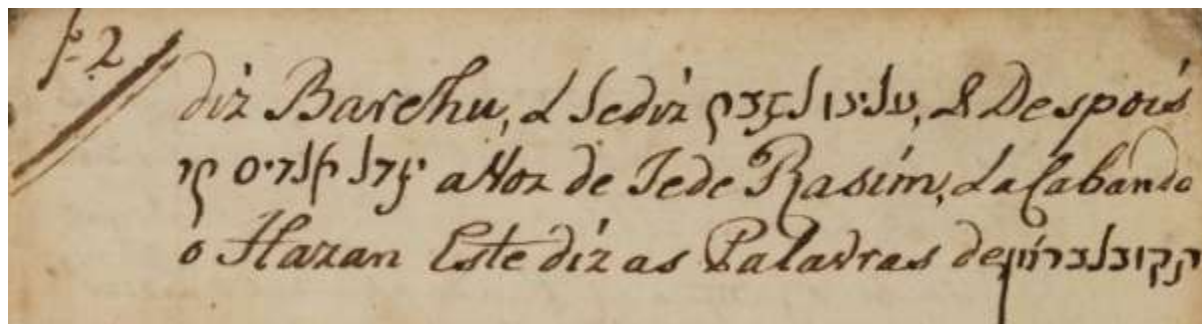 f-2
diz Barchu, & se diz עלינו לשבח, & Despois
יגדל אלהים חי a Voz de Jede Rasim, & acabando
o Hazan Este diz as Palavras de